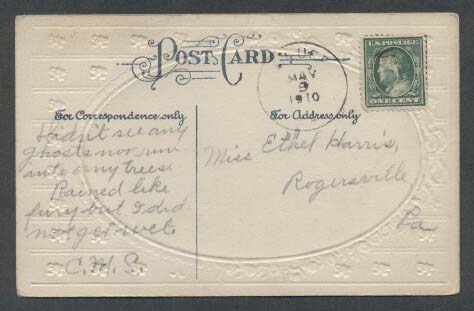 POST CARD
USA
MAY
9
1910
U.S. POSTAGE
ONE CENT
For Correspondence only
For Address only
I didn't see any
ghosts nor run
into any trees.
Rained like
fury but I did
not get wet.
C. M. S.
Miss Ethel Harris,
Rogersville
Pa